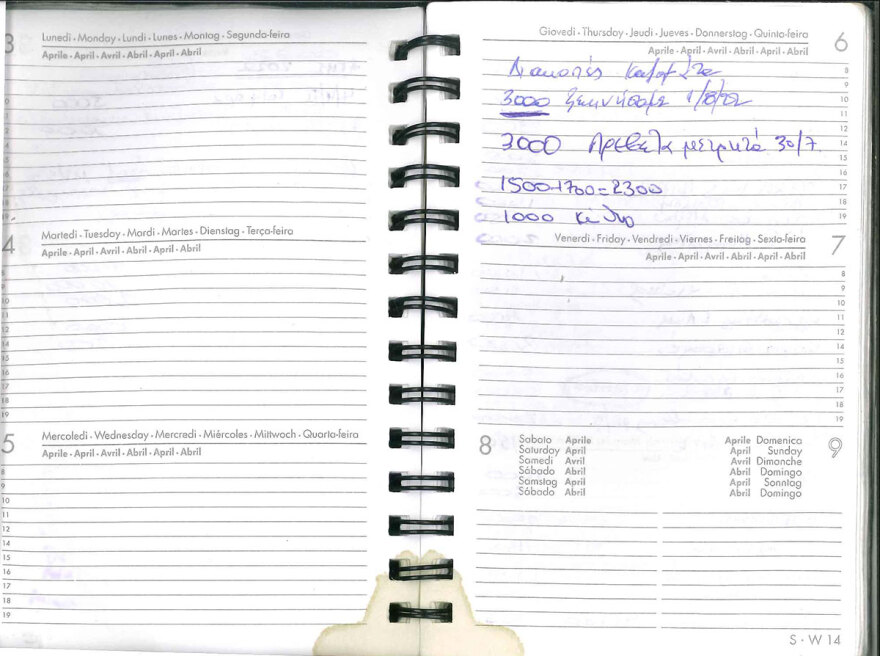 3
Lunedì · Monday · Lundi · Lunes · Montag · Segunda-feira
Aprile · April · Avril · Abril · April · Abril
10
11
12
14
15
16
17
18
19
4
Martedì · Tuesday · Mardi · Martes · Dienstag · Terça-feira
Aprile · April · Avril · Abril · April · Abril
8
9
10
11
12
14
15
16
17
18
19
5
Mercoledì · Wednesday · Mercredi · Miércoles · Mittwoch · Quarta-feira
Aprile · April · Avril · Abril · April · Abril
8
9
10
11
12
14
15
16
17
18
19
Giovedì · Thursday · Jeudi · Jueves · Donnerstag · Quinta-feira 6
Aprile · April · Avril · Abril · April · Abril
Διακοπές 8
9
3000 ξεκινήσαμε 1/8/22 10
11
12
3000 μετρητά 30/7 14
15
16
1500+700=2300 17
18
1000 19
Venerdì · Friday · Vendredi · Viernes · Freitag · Sexta-feira 7
Aprile · April · Avril · Abril · April · Abril
8
9
10
11
12
14
15
16
17
18
19
8
Sabato Aprile
Saturday April
Samedi Avril
Sábado Abril
Samstag April
Sábado Abril
9
Aprile Domenica
April Sunday
Avril Dimanche
Abril Domingo
April Sonntag
Abril Domingo
S · W 14